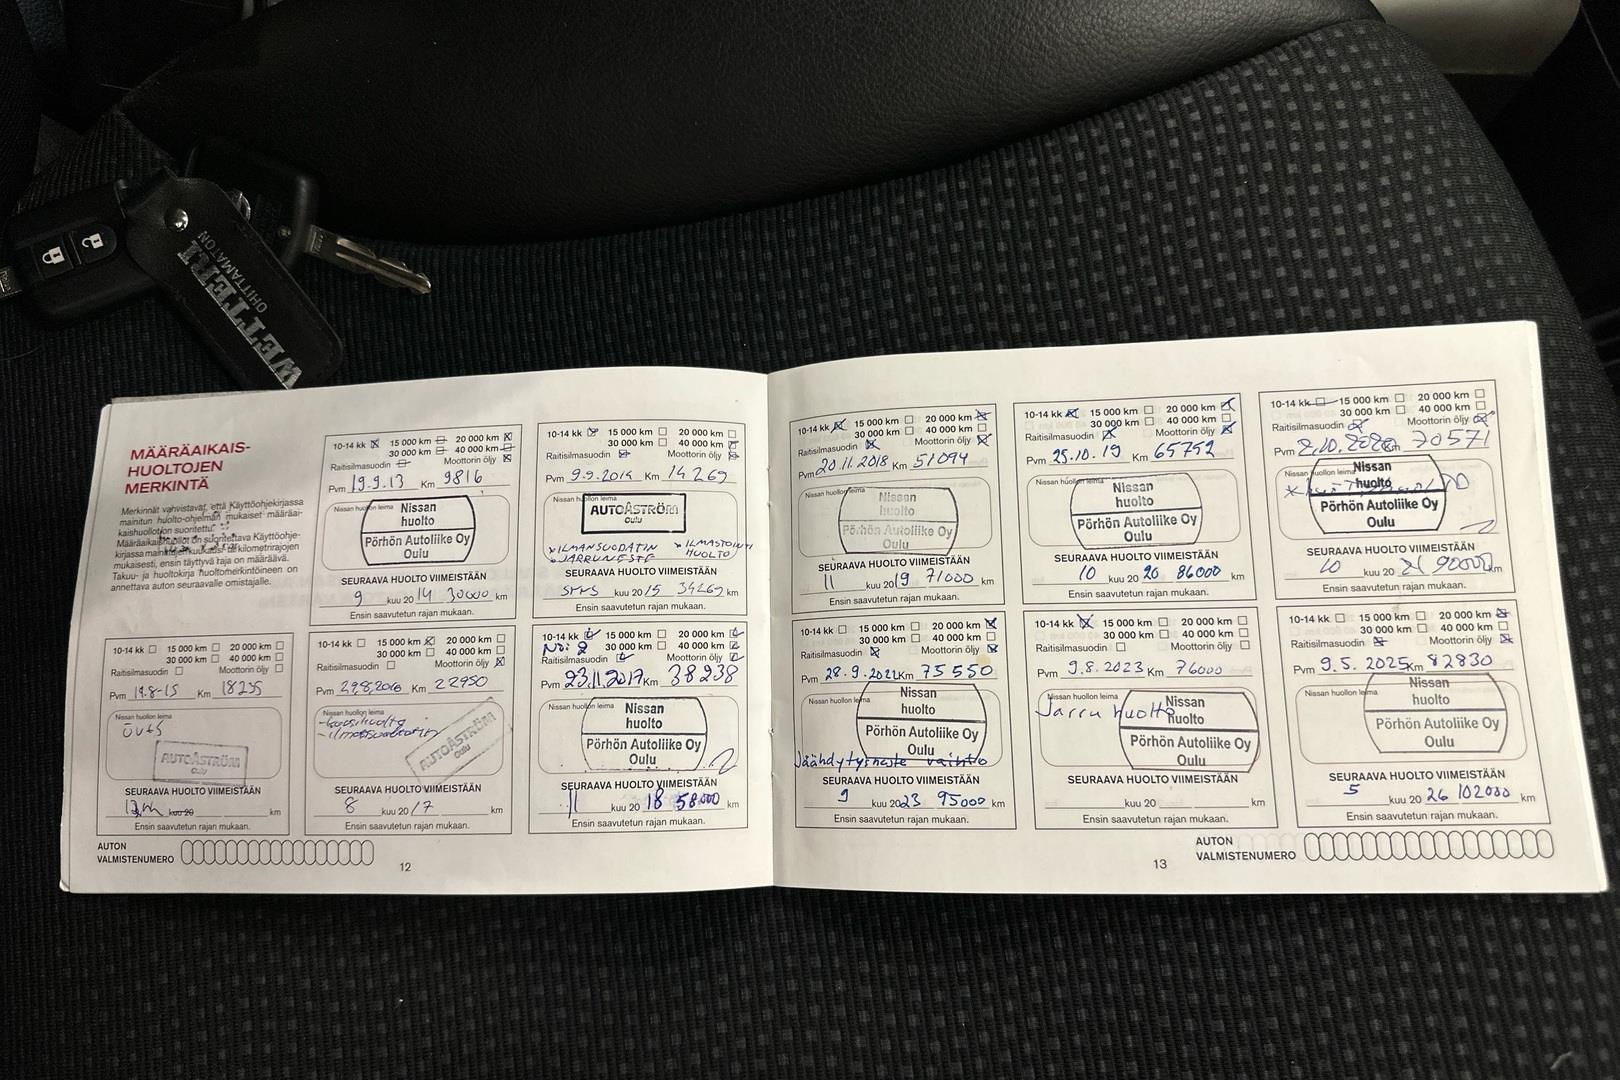 WETTERI
OHITTAMATON
MÄÄRÄAIKAIS-
HUOLTOJEN
MERKINTÄ
Merkinnät vahvistavat, että Käyttöohjekirjassa
mainitun huolto-ohjelman mukaiset määräai-
kaishuollot on suoritettu.
Määräaikaishuollot on suoritettava Käyttöohje-
kirjassa mainittujen kuukausi- tai kilometrirajojen
mukaisesti, ensin täyttyvä raja on määräävä.
Takuu- ja huoltokirja huoltomerkintöineen on
annettava auton seuraavalle omistajalle.
10-14 kk 15 000 km 20 000 km
30 000 km 40 000 km
Raitisilmasuodin Moottorin öljy
Pvm 19.9.13 Km 9816
Nissan huollon leima
Nissan
huolto
Pörhön Autoliike Oy
Oulu
SEURAAVA HUOLTO VIIMEISTÄÄN
9 kuu 20 14 30000 km
Ensin saavutetun rajan mukaan.
10-14 kk 15 000 km 20 000 km
30 000 km 40 000 km
Raitisilmasuodin Moottorin öljy
Pvm 9.9.2014 Km 14269
Nissan huollon leima
AUTOÅSTRÖM
Oulu
*ILMANSUODATIN *ILMASTOINTI
*JARRUNESTE HUOLTO
SEURAAVA HUOLTO VIIMEISTÄÄN
SYYS kuu 20 15 34269 km
Ensin saavutetun rajan mukaan.
10-14 kk 15 000 km 20 000 km
30 000 km 40 000 km
Raitisilmasuodin Moottorin öljy
Pvm 19.8-15 Km 18255
Nissan huollon leima
AUTOÅSTRÖM
Oulu
SEURAAVA HUOLTO VIIMEISTÄÄN
kuu 20 km
Ensin saavutetun rajan mukaan.
10-14 kk 15 000 km 20 000 km
30 000 km 40 000 km
Raitisilmasuodin Moottorin öljy
Pvm 29.8.2016 Km 22950
Nissan huollon leima
-vuosihuolto
-ilmansuodatin
AUTOÅSTRÖM
Oulu
SEURAAVA HUOLTO VIIMEISTÄÄN
8 kuu 20 17 km
Ensin saavutetun rajan mukaan.
10-14 kk 15 000 km 20 000 km
No: 2 30 000 km 40 000 km
Raitisilmasuodin Moottorin öljy
Pvm 23.11.2017 Km 38238
Nissan
huolto
Pörhön Autoliike Oy
Oulu
SEURAAVA HUOLTO VIIMEISTÄÄN
11 kuu 20 18 58000 km
Ensin saavutetun rajan mukaan.
AUTON
VALMISTENUMERO
12
10-14 kk 15 000 km 20 000 km
30 000 km 40 000 km
Raitisilmasuodin Moottorin öljy
Pvm 20.11.2018 Km 51094
Nissan huollon leima
Nissan
huolto
Pörhön Autoliike Oy
Oulu
SEURAAVA HUOLTO VIIMEISTÄÄN
11 kuu 20 19 71000 km
Ensin saavutetun rajan mukaan.
10-14 kk 15 000 km 20 000 km
30 000 km 40 000 km
Raitisilmasuodin Moottorin öljy
Pvm 25.10.19 Km 65752
Nissan huollon leima
Nissan
huolto
Pörhön Autoliike Oy
Oulu
SEURAAVA HUOLTO VIIMEISTÄÄN
10 kuu 20 20 86000 km
Ensin saavutetun rajan mukaan.
10-14 kk 15 000 km 20 000 km
30 000 km 40 000 km
Raitisilmasuodin Moottorin öljy
Pvm 2.10.2020 Km 70571
Nissan huollon leima
Nissan
huolto
Pörhön Autoliike Oy
Oulu
SEURAAVA HUOLTO VIIMEISTÄÄN
10 kuu 20 21 90000 km
Ensin saavutetun rajan mukaan.
10-14 kk 15 000 km 20 000 km
30 000 km 40 000 km
Raitisilmasuodin Moottorin öljy
Pvm 28.9.2022 Km 75550
Nissan huollon leima
Nissan
huolto
Pörhön Autoliike Oy
Oulu
Jäähdytysneste vaihto
SEURAAVA HUOLTO VIIMEISTÄÄN
9 kuu 20 23 95000 km
Ensin saavutetun rajan mukaan.
10-14 kk 15 000 km 20 000 km
30 000 km 40 000 km
Raitisilmasuodin Moottorin öljy
Pvm 9.8.2023 Km 76000
Nissan huollon leima
Jarru huolto
Nissan
huolto
Pörhön Autoliike Oy
Oulu
SEURAAVA HUOLTO VIIMEISTÄÄN
kuu 20 km
Ensin saavutetun rajan mukaan.
10-14 kk 15 000 km 20 000 km
30 000 km 40 000 km
Raitisilmasuodin Moottorin öljy
Pvm 9.5.2025 Km 82830
Nissan huollon leima
Nissan
huolto
Pörhön Autoliike Oy
Oulu
SEURAAVA HUOLTO VIIMEISTÄÄN
5 kuu 20 26 102000 km
Ensin saavutetun rajan mukaan.
13
AUTON
VALMISTENUMERO